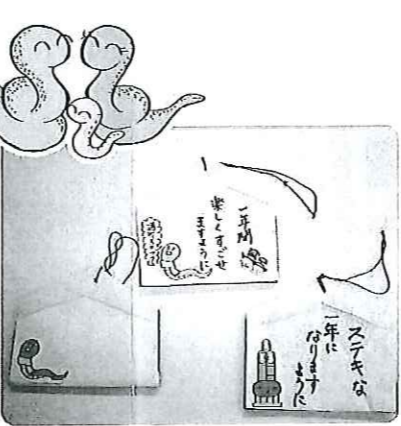 一年間
楽しくすごせ
ますように
ステキな
一年に
なります
ように